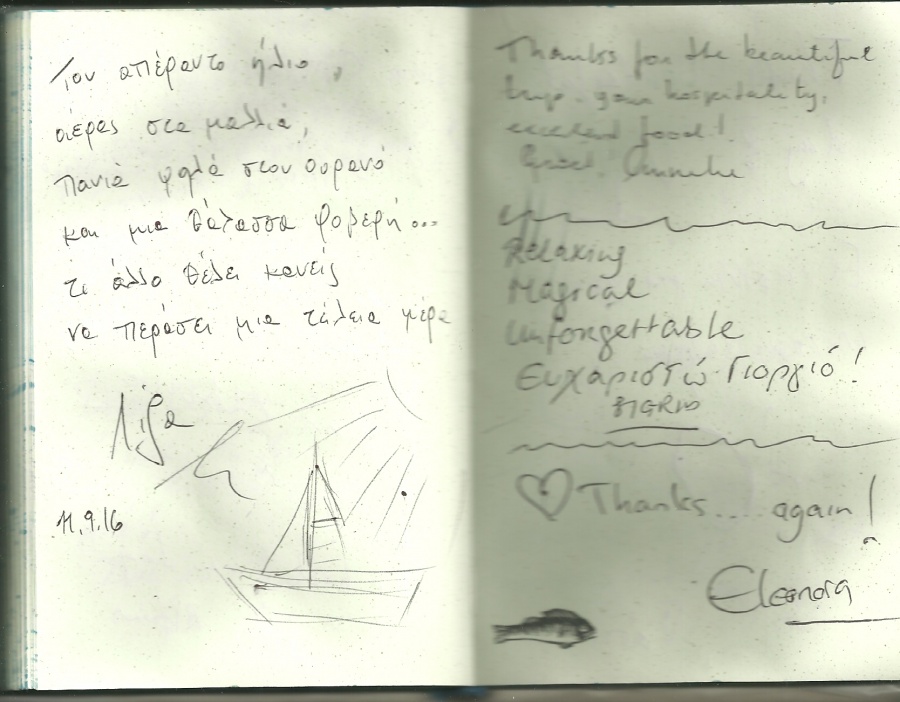 Τον απέραντο ήλιο,
αέρας στα μαλλιά,
πανιά ψηλά στον ουρανό
και μια θάλασσα φοβερή...
τι άλλο θέλει κανείς
να περάσει μια τέλεια μέρα
Λίζα
11.9.16
Thanks for the beautiful
trip. your hospitality,
excelent food!
Relaxing
Magical
Unforgettable
Ευχαριστώ Γιοργιό!
Thanks.... again!
Eleonora